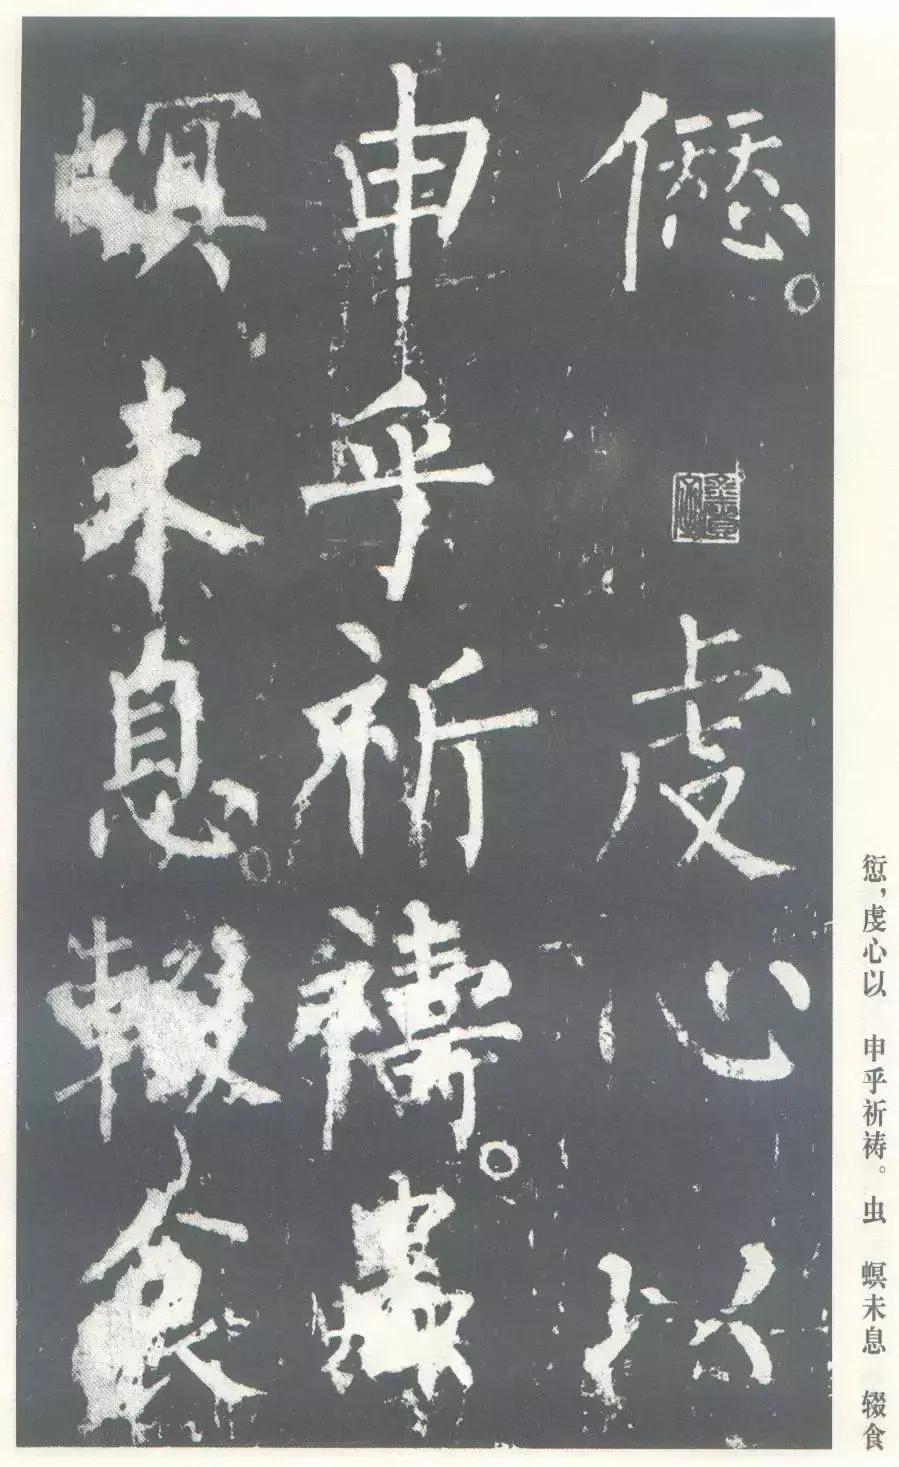 僁。虔心以
申乎祈禱。蟲
螟未息。輟食
愆，虔心以　申乎祈祷。虫　螟未息　辍食